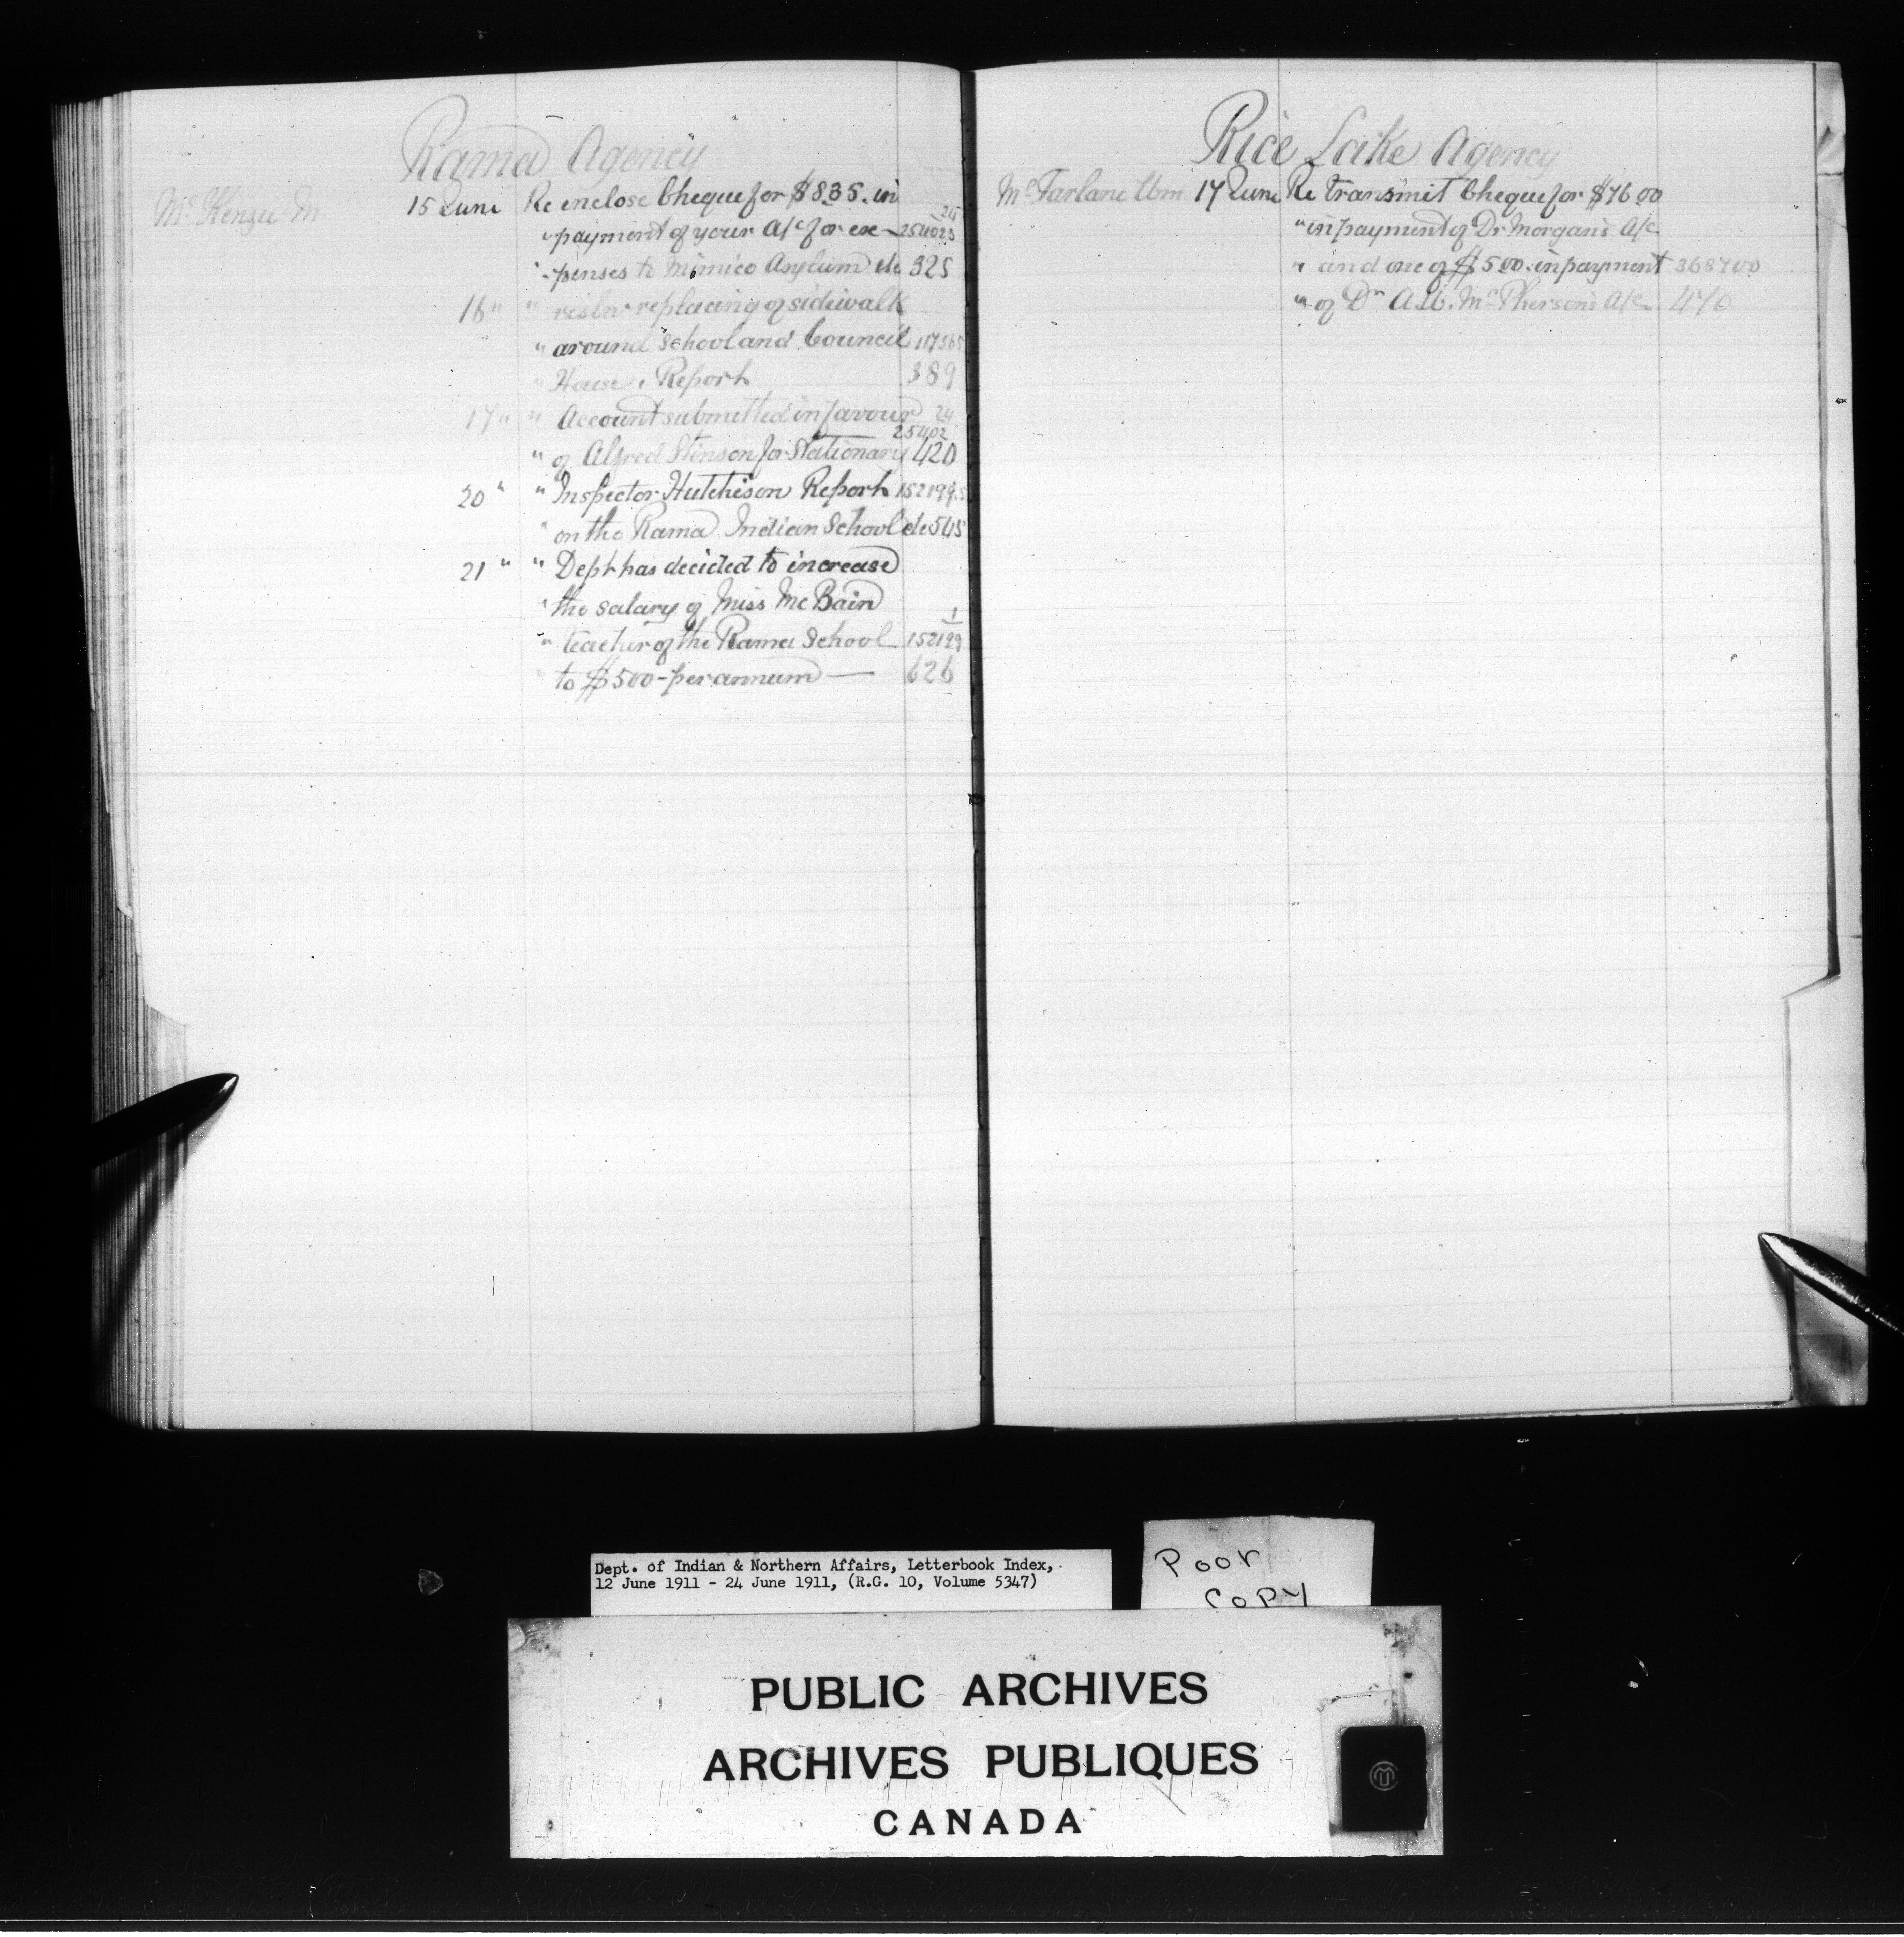 Rama Agency
Mc Kenzie M. 15 June Re enclose Cheque for $8.35. in
24
" payment of your A/c for ex- 254023
" penses to Mimico Asylum etc 325
16 " " resln replacing of sidewalk
" around School and Council 117365
" House, Report 389
17 " " Account submitted in favour 24
25402
" of Alfred Stinson for Stationary 420
20 " " Inspector Hutchison Report 152199
" on the Rama Indian School etc 545
21 " " Dept has decided to increase
" the salary of Miss Mc Bain
1
" teacher of the Rama School 152199
" to $500 - per annum — 626
Rice Lake Agency
Mc Farlane Wm 17 June Re transmit Cheque for $76.00
" in payment of Dr Morgan's A/c
" and one of $5.00. in payment 368700
" of Dr A.W. Mc Pherson's A/c 470
Dept. of Indian & Northern Affairs, Letterbook Index,
12 June 1911 - 24 June 1911, (R.G. 10, Volume 5347)
Poor
Copy
PUBLIC ARCHIVES
ARCHIVES PUBLIQUES
CANADA